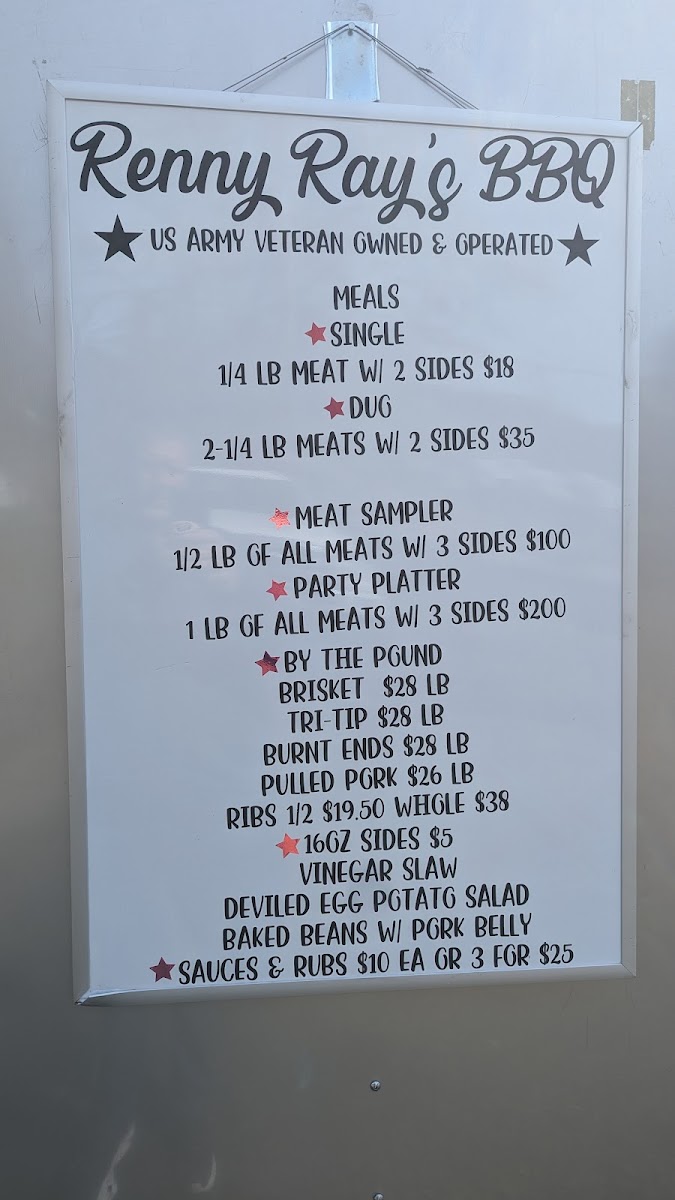 Renny Ray's BBQ
US ARMY VETERAN OWNED & OPERATED
MEALS
SINGLE
1/4 LB MEAT W/ 2 SIDES $18
DUO
2-1/4 LB MEATS W/ 2 SIDES $35
MEAT SAMPLER
1/2 LB OF ALL MEATS W/ 3 SIDES $100
PARTY PLATTER
1 LB OF ALL MEATS W/ 3 SIDES $200
BY THE POUND
BRISKET $28 LB
TRI-TIP $28 LB
BURNT ENDS $28 LB
PULLED PORK $26 LB
RIBS 1/2 $19.50 WHOLE $38
16OZ SIDES $5
VINEGAR SLAW
DEVILED EGG POTATO SALAD
BAKED BEANS W/ PORK BELLY
SAUCES & RUBS $10 EA OR 3 FOR $25